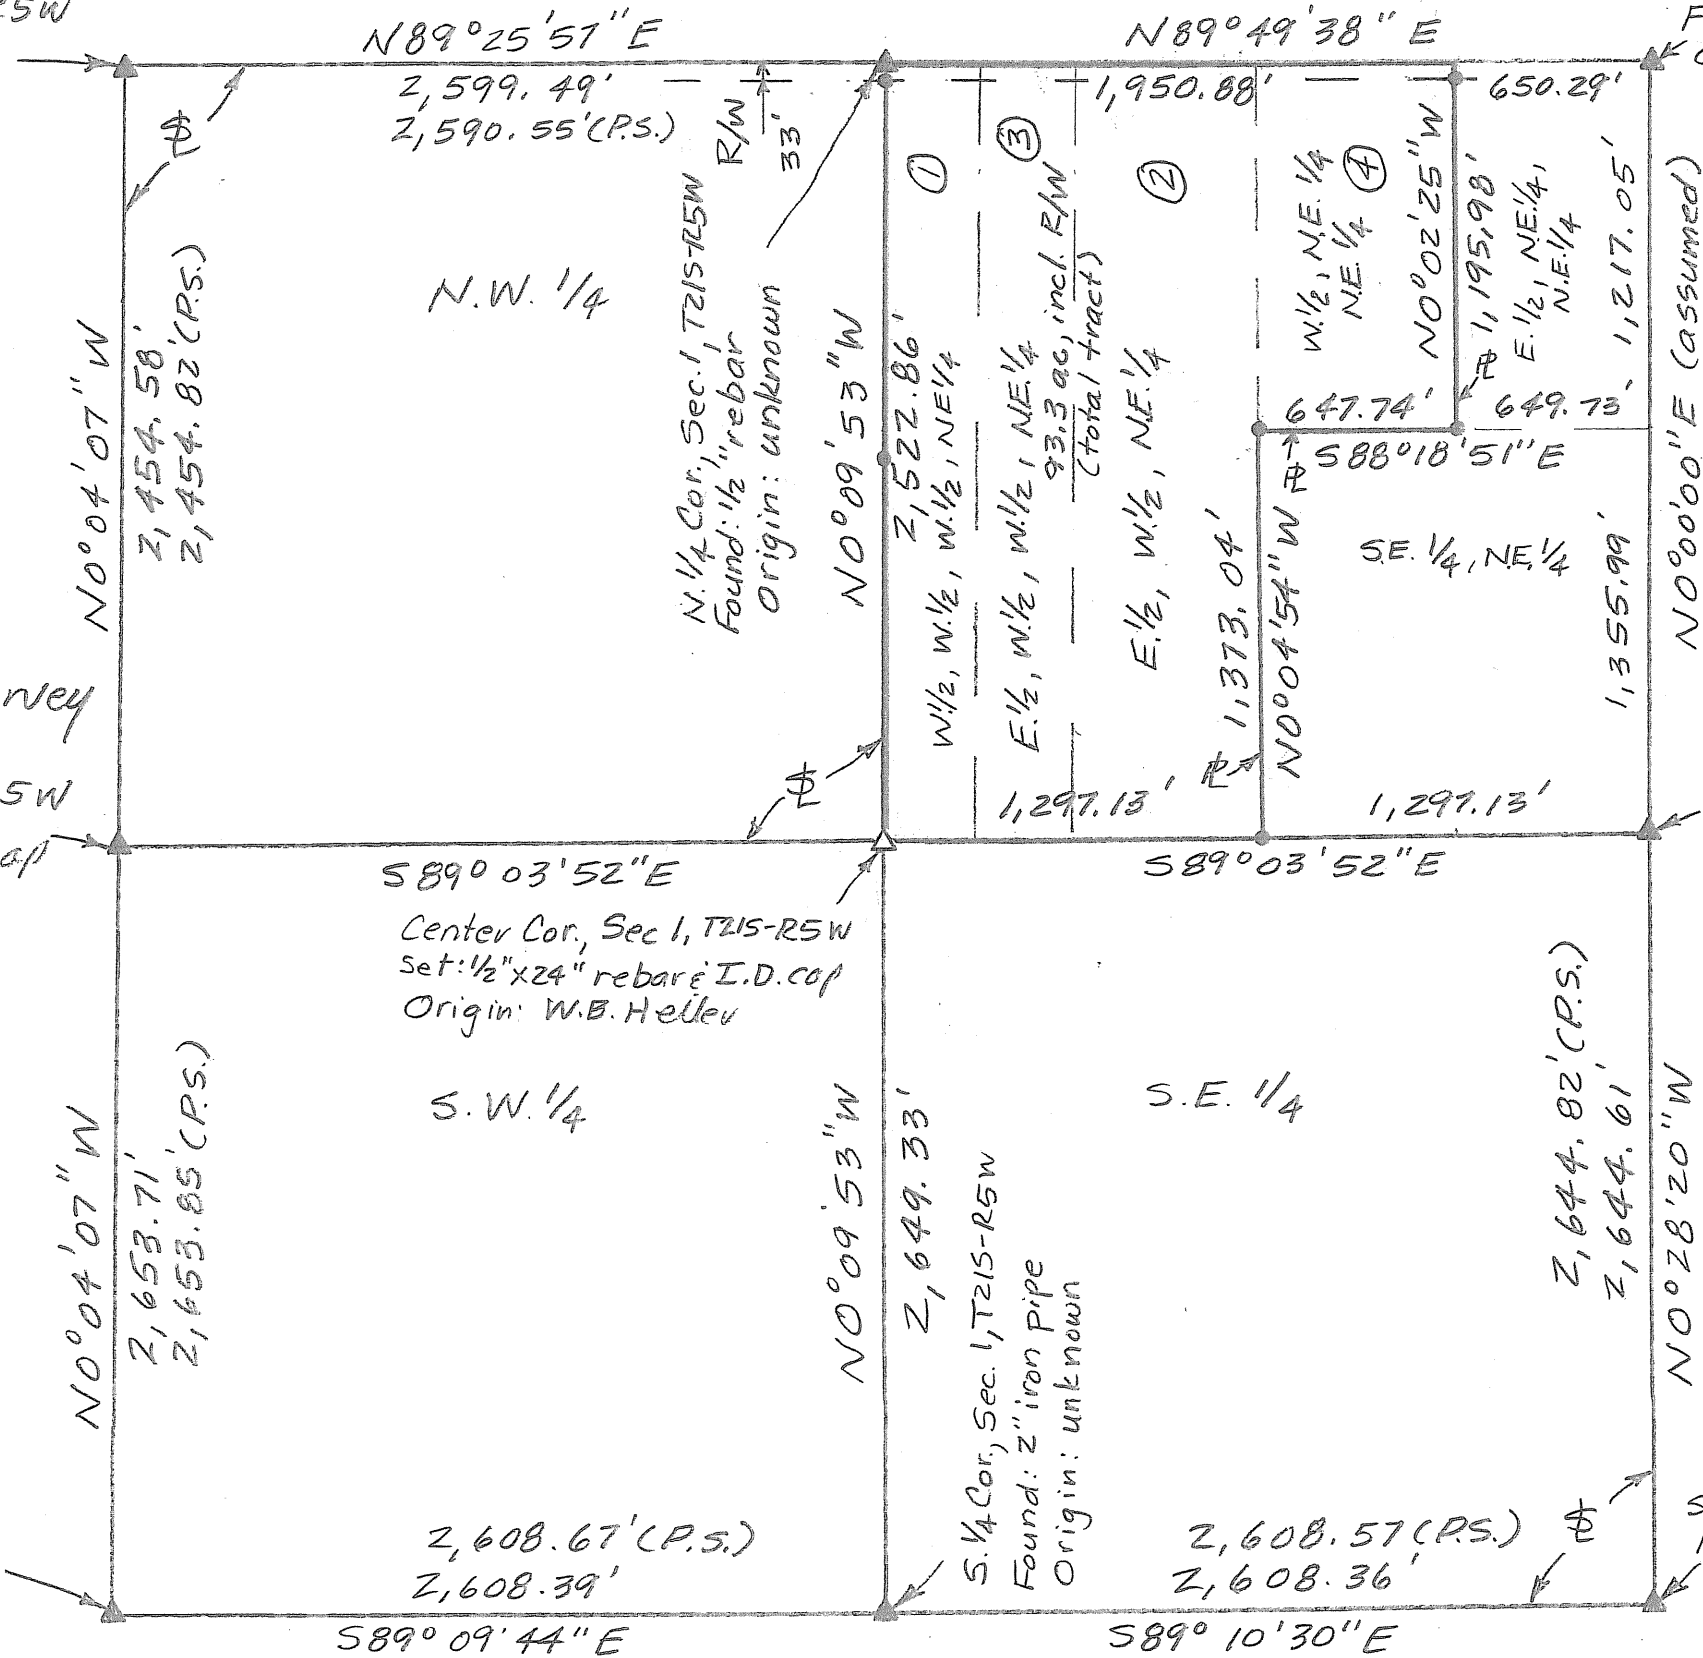 25W
N89°25'57"E
N89°49'38"E
F
2,599.49'
2,590.55'(P.S.)
R/W
33'
1,950.88'
650.29'
N0°04'07"W
2,454.58'
2,454.82'(P.S.)
N.W. 1/4
N.1/4 Cor., Sec.1, T21S-R5W
Found: 1/2" rebar
Origin: unknown
N0°09'53"W
2,522.86'
①
W.1/2, W.1/2, W.1/2, NE1/4
③
E.1/2, W.1/2, W.1/2, NE.1/4
93.3 ac, incl. R/W
(total tract)
②
E.1/2, W.1/2, N.E.1/4
④
W.1/2, N.E.1/4
N.E.1/4
N0°02'25"W
1,195.98'
E.1/2, NE.1/4,
N.E.1/4
1,217.05'
N0°00'00"E (assumed)
647.74'
649.73'
S88°18'51"E
1,373.04'
N0°04'54"W
S.E. 1/4, N.E. 1/4
1,355.99'
ney
5W
ap
1,297.13'
1,297.13'
S89°03'52"E
S89°03'52"E
Center Cor., Sec 1, T21S-R5W
Set: 1/2"x24" rebar & I.D. cap
Origin: W.B. Heller
N0°04'07"W
2,653.71'
2,653.85'(P.S.)
S.W. 1/4
N0°09'53"W
2,649.33'
S.1/4 Cor., Sec.1, T21S-R5W
Found: 2" iron pipe
Origin: unknown
S.E. 1/4
2,644.82'(P.S.)
2,644.61'
N0°28'20"W
2,608.67'(P.S.)
2,608.39'
2,608.57(P.S.)
2,608.36'
S
S89°09'44"E
S89°10'30"E